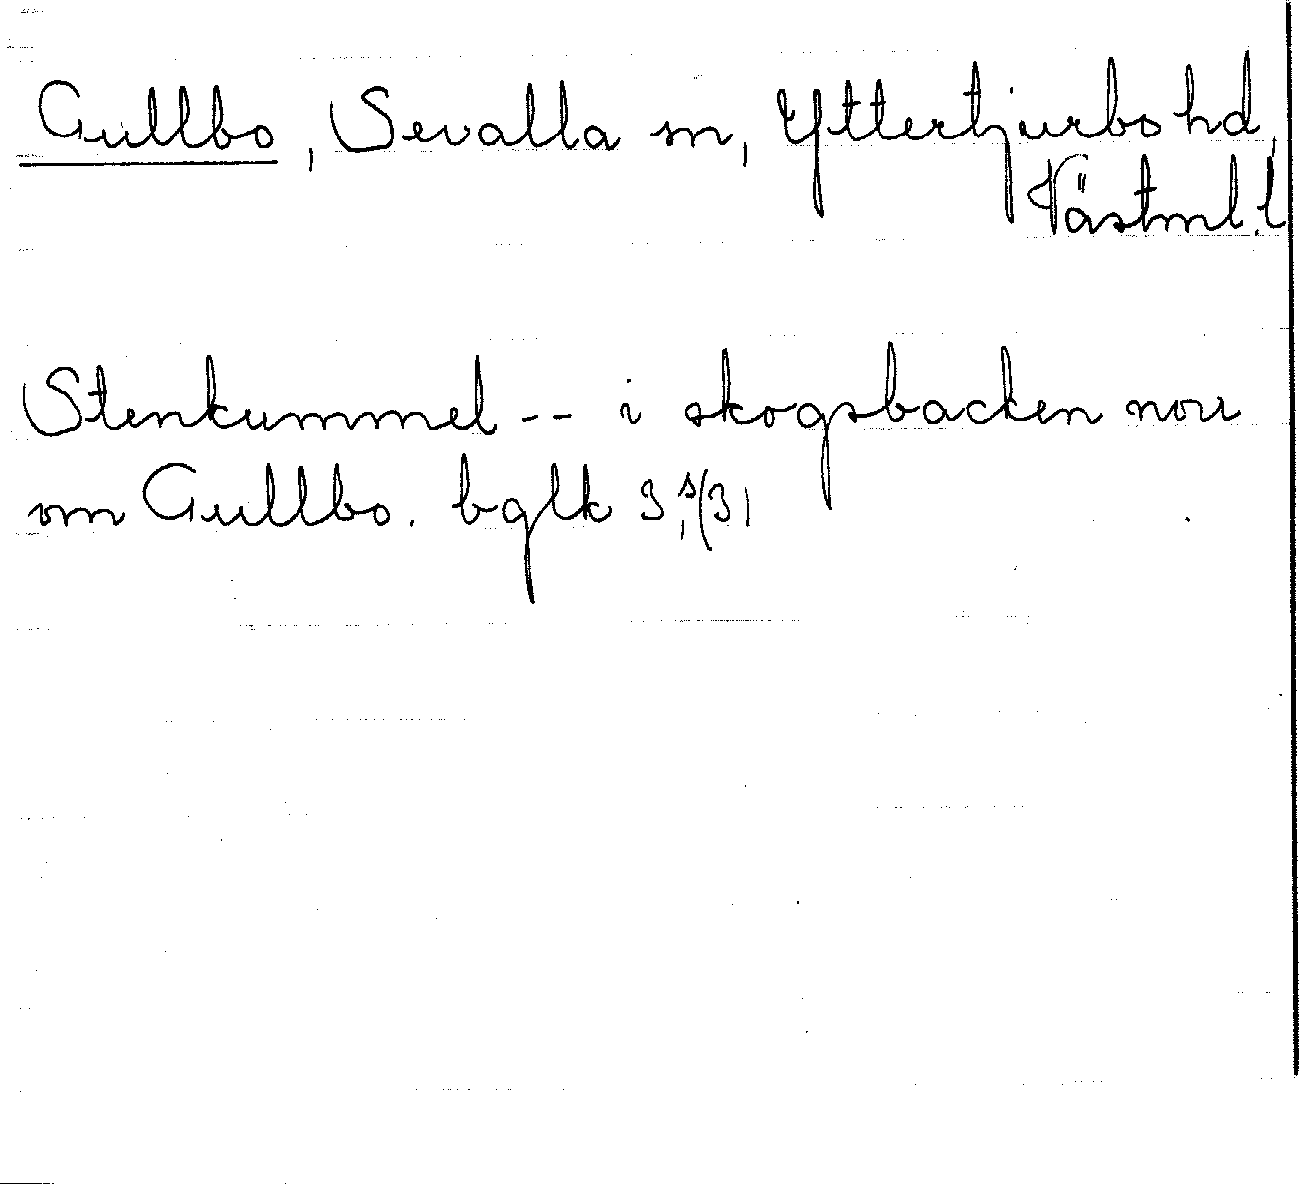 Gullbo, Sevalla sn, Yttertjurbo hd,
Västml. l
Stenkummel -- i skogsbacken norr
om Gullbo. bglk 3, s 31